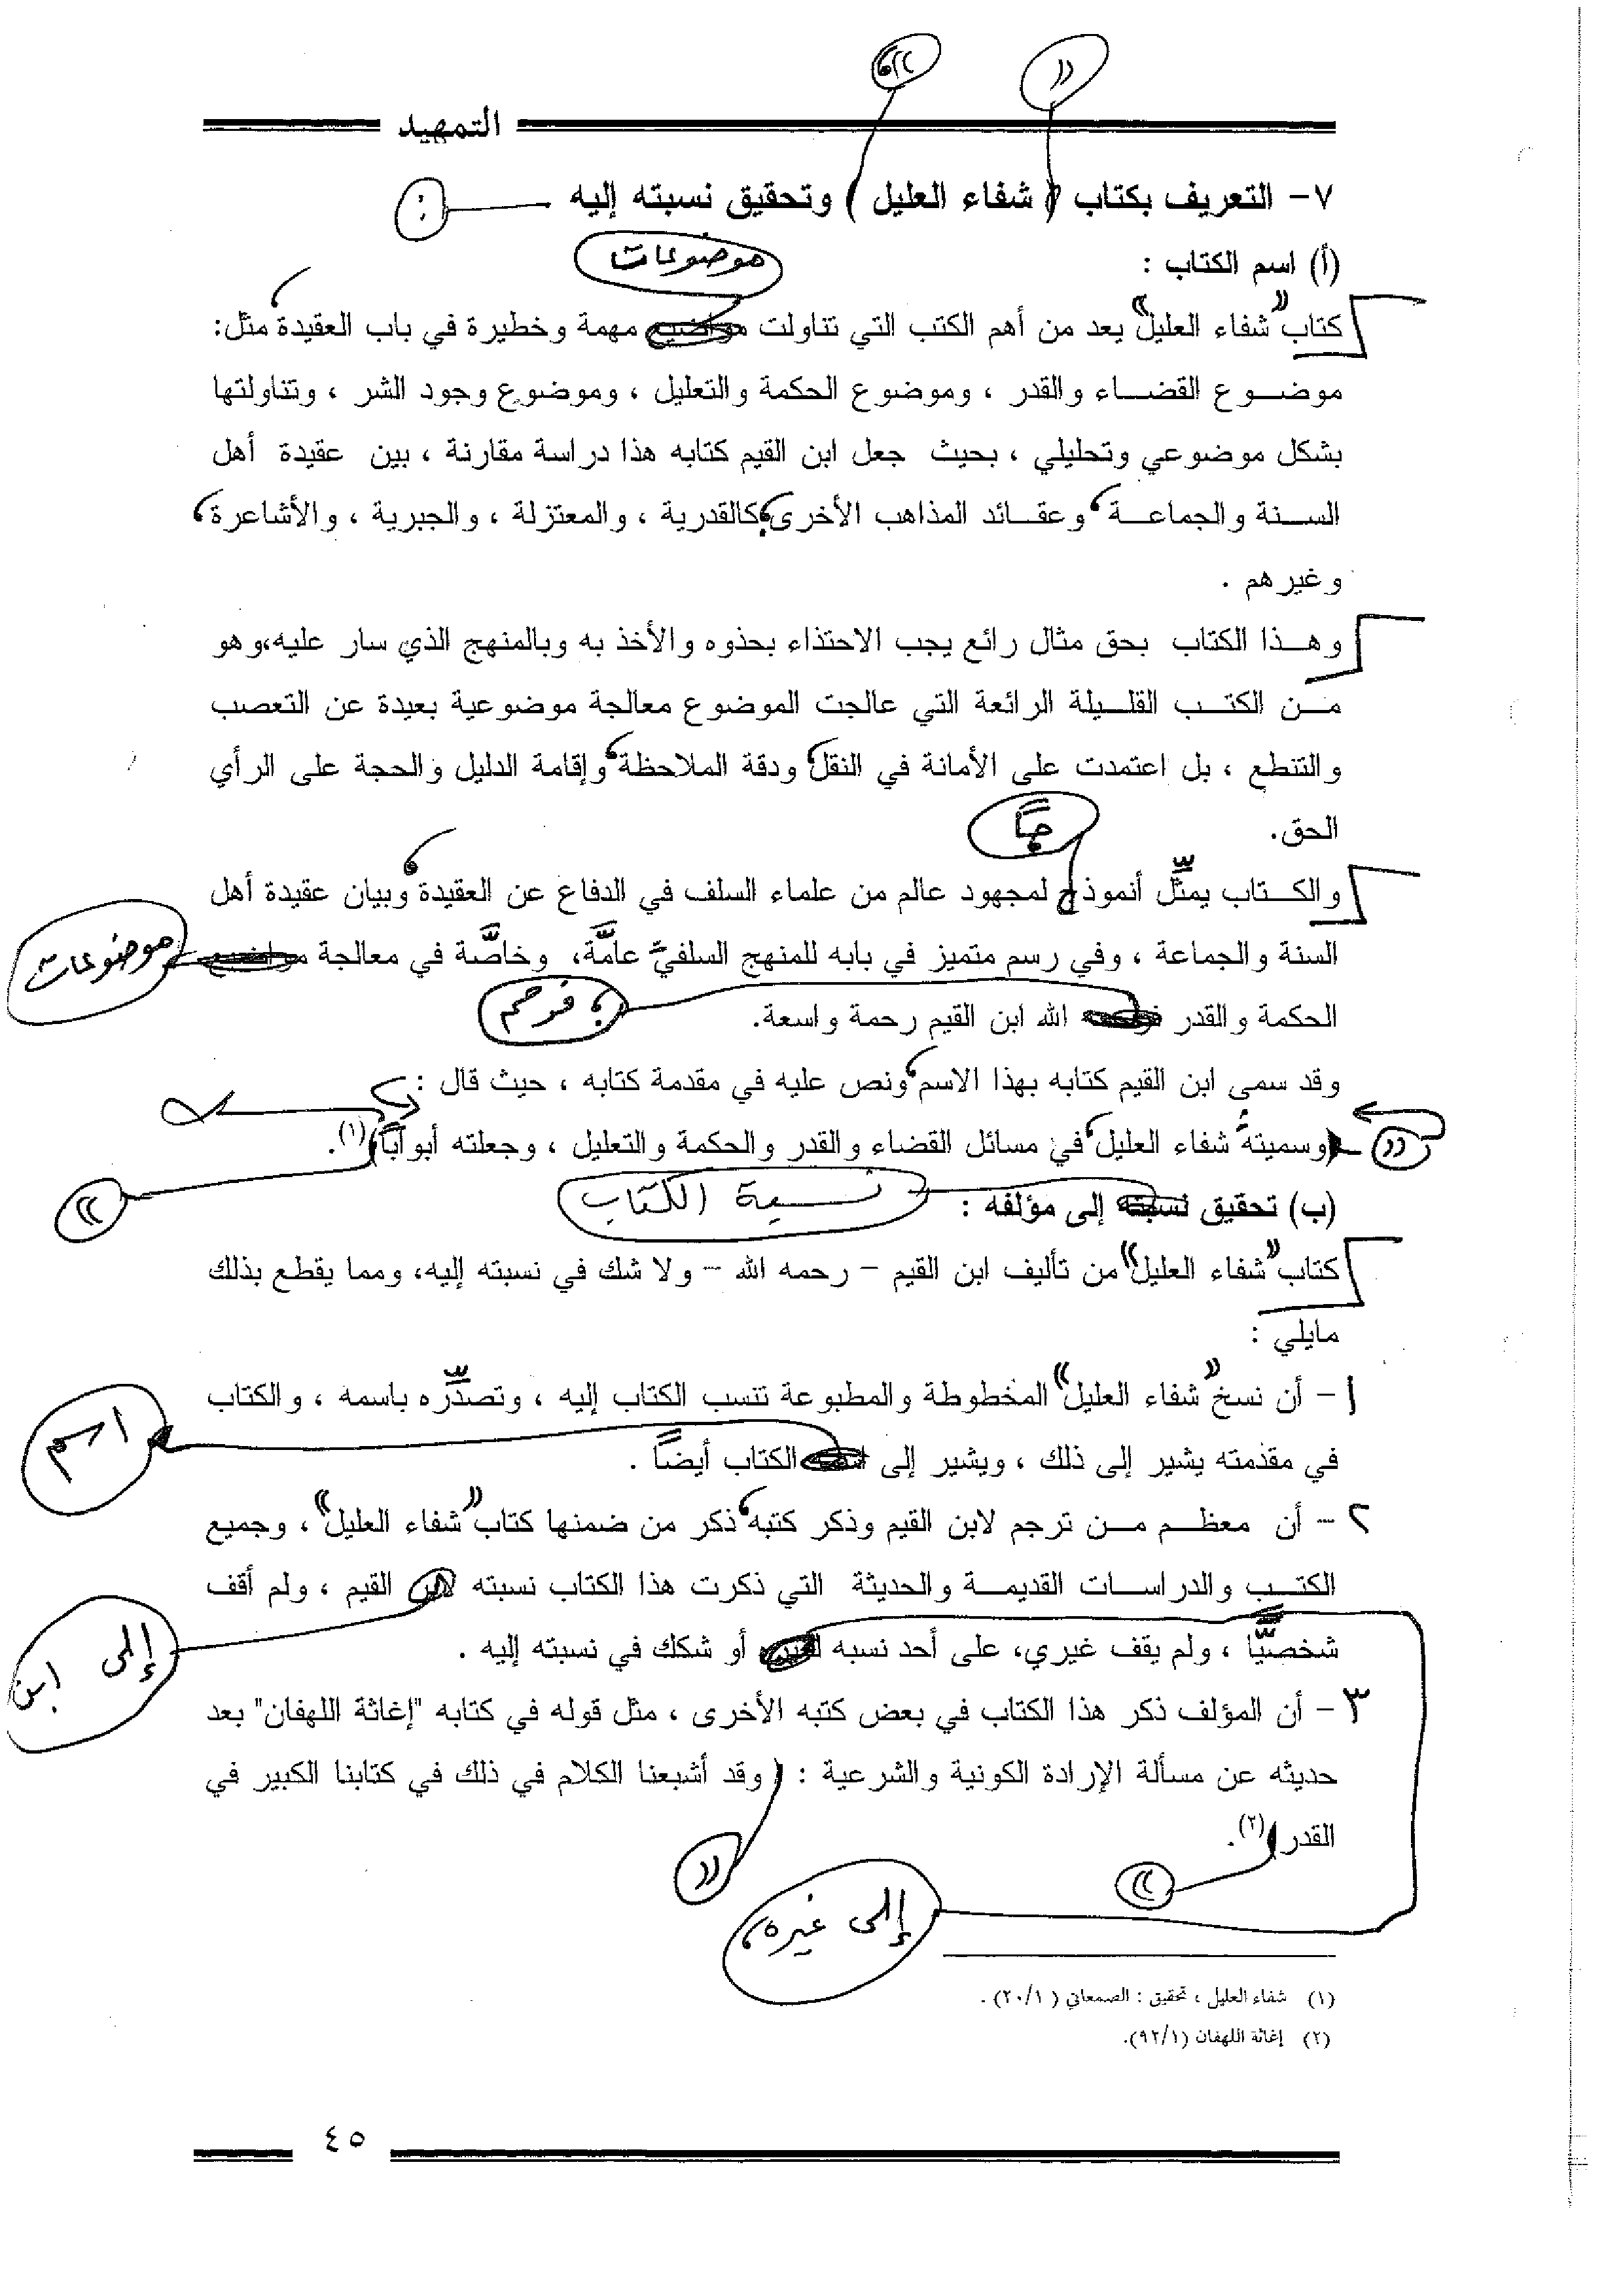 التمهيد
٧- التعريف بكتاب ( شفاء العليل ) وتحقيق نسبته إليه :
(أ) اسم الكتاب :
موضوعات
كتاب "شفاء العليل" يعد من أهم الكتب التي تناولت مواضيع مهمة وخطيرة في باب العقيدة، مثل:
موضوع القضاء والقدر ، وموضوع الحكمة والتعليل ، وموضوع وجود الشر ، وتناولتها
بشكل موضوعي وتحليلي ، بحيث جعل ابن القيم كتابه هذا دراسة مقارنة ، بين عقيدة أهل
السنة والجماعة، وعقائد المذاهب الأخرى؛ كالقدرية ، والمعتزلة ، والجبرية ، والأشاعرة،
وغيرهم .
وهذا الكتاب بحق مثال رائع يجب الاحتذاء بحذوه والأخذ به وبالمنهج الذي سار عليه،وهو
من الكتب القليلة الرائعة التي عالجت الموضوع معالجة موضوعية بعيدة عن التعصب
والتنطع ، بل اعتمدت على الأمانة في النقل، ودقة الملاحظة، وإقامة الدليل والحجة على الرأي
الحق.
جًا
والكتاب يمثِّل أنموذج لمجهود عالم من علماء السلف في الدفاع عن العقيدة، وبيان عقيدة أهل
السنة والجماعة ، وفي رسم متميز في بابه للمنهج السلفيِّ عامَّة، وخاصَّة في معالجة مواضيع
موضوعات
الحكمة والقدر الله ابن القيم رحمة واسعة.
؛ فرحم
وقد سمى ابن القيم كتابه بهذا الاسم، ونص عليه في مقدمة كتابه ، حيث قال :
(وسميتهُ شفاء العليل، في مسائل القضاء والقدر والحكمة والتعليل ، وجعلته أبوابًا)(١).
(ب) تحقيق نسبته إلى مؤلفه :
نسبة الكتاب
كتاب "شفاء العليل" من تأليف ابن القيم - رحمه الله - ولا شك في نسبته إليه، ومما يقطع بذلك
مايلي :
١- أن نسخ "شفاء العليل" المخطوطة والمطبوعة تنسب الكتاب إليه ، وتصدِّره باسمه ، والكتاب
في مقدمته يشير إلى ذلك ، ويشير إلى الكتاب أيضًا .
اسم
٢- أن معظم من ترجم لابن القيم وذكر كتبه، ذكر من ضمنها كتاب "شفاء العليل" ، وجميع
الكتب والدراسات القديمة والحديثة التي ذكرت هذا الكتاب نسبته لابن القيم ، ولم أقف
إلى ابن
شخصيًّا ، ولم يقف غيري، على أحد نسبه لغيره أو شكك في نسبته إليه .
٣- أن المؤلف ذكر هذا الكتاب في بعض كتبه الأخرى ، مثل قوله في كتابه "إغاثة اللهفان" بعد
حديثه عن مسألة الإرادة الكونية والشرعية : ( وقد أشبعنا الكلام في ذلك في كتابنا الكبير في
القدر )(٢).
إلى غيره،
(١) شفاء العليل ، تحقيق : الصمعاني ( ٢٠/١) .
(٢) إغاثة اللهفان (٩٢/١).
٤٥